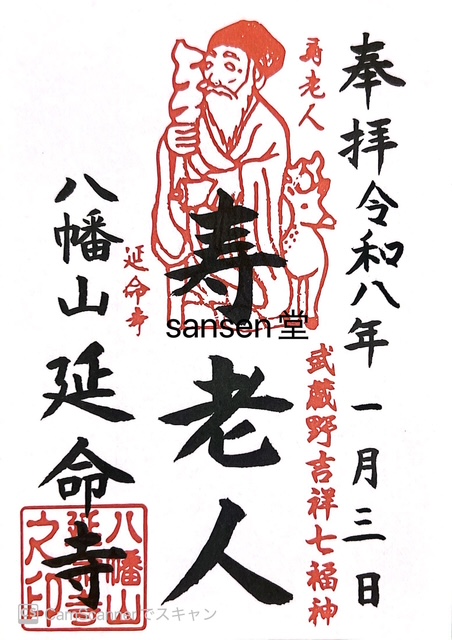 奉拝令和八年一月三日
寿老人
武蔵野吉祥七福神
寿老人
延命寺
八幡山延命寺
八幡山
延命寺
之印
sansen堂
CamScannerでスキャン